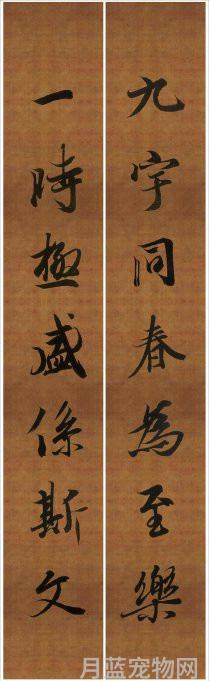 九宇同春為至樂
一時極盛係斯文
月蓝宠物网